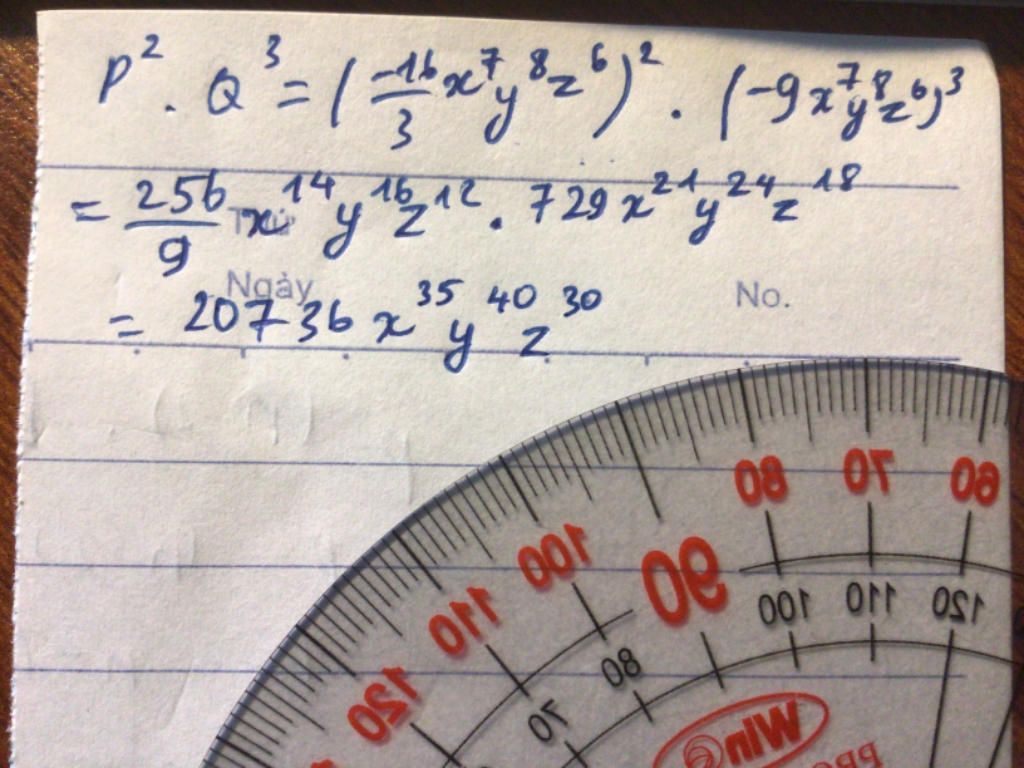 P² . Q³ = (-16/3 x⁷y⁸z⁶)² . (-9x⁷y⁸z⁶)³
= 256/9 x¹⁴y¹⁶z¹² . 729x²¹y²⁴z¹⁸
Thứ
Ngày No.
= 20736 x³⁵y⁴⁰z³⁰
80 70 60
100 90 100 110 120
110 80
120 70
Win